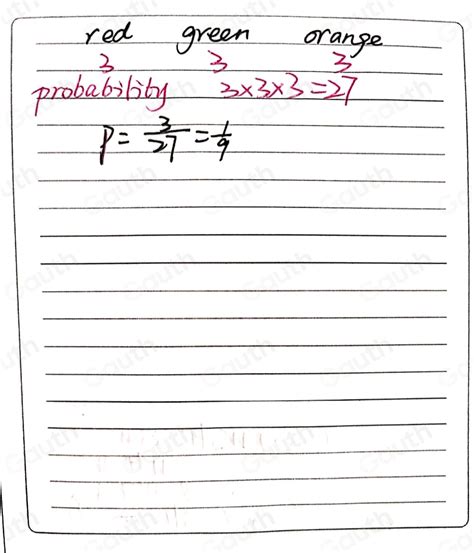 red green orange
3 3 3
probability 3×3×3=27
P= 3/27 = 1/9